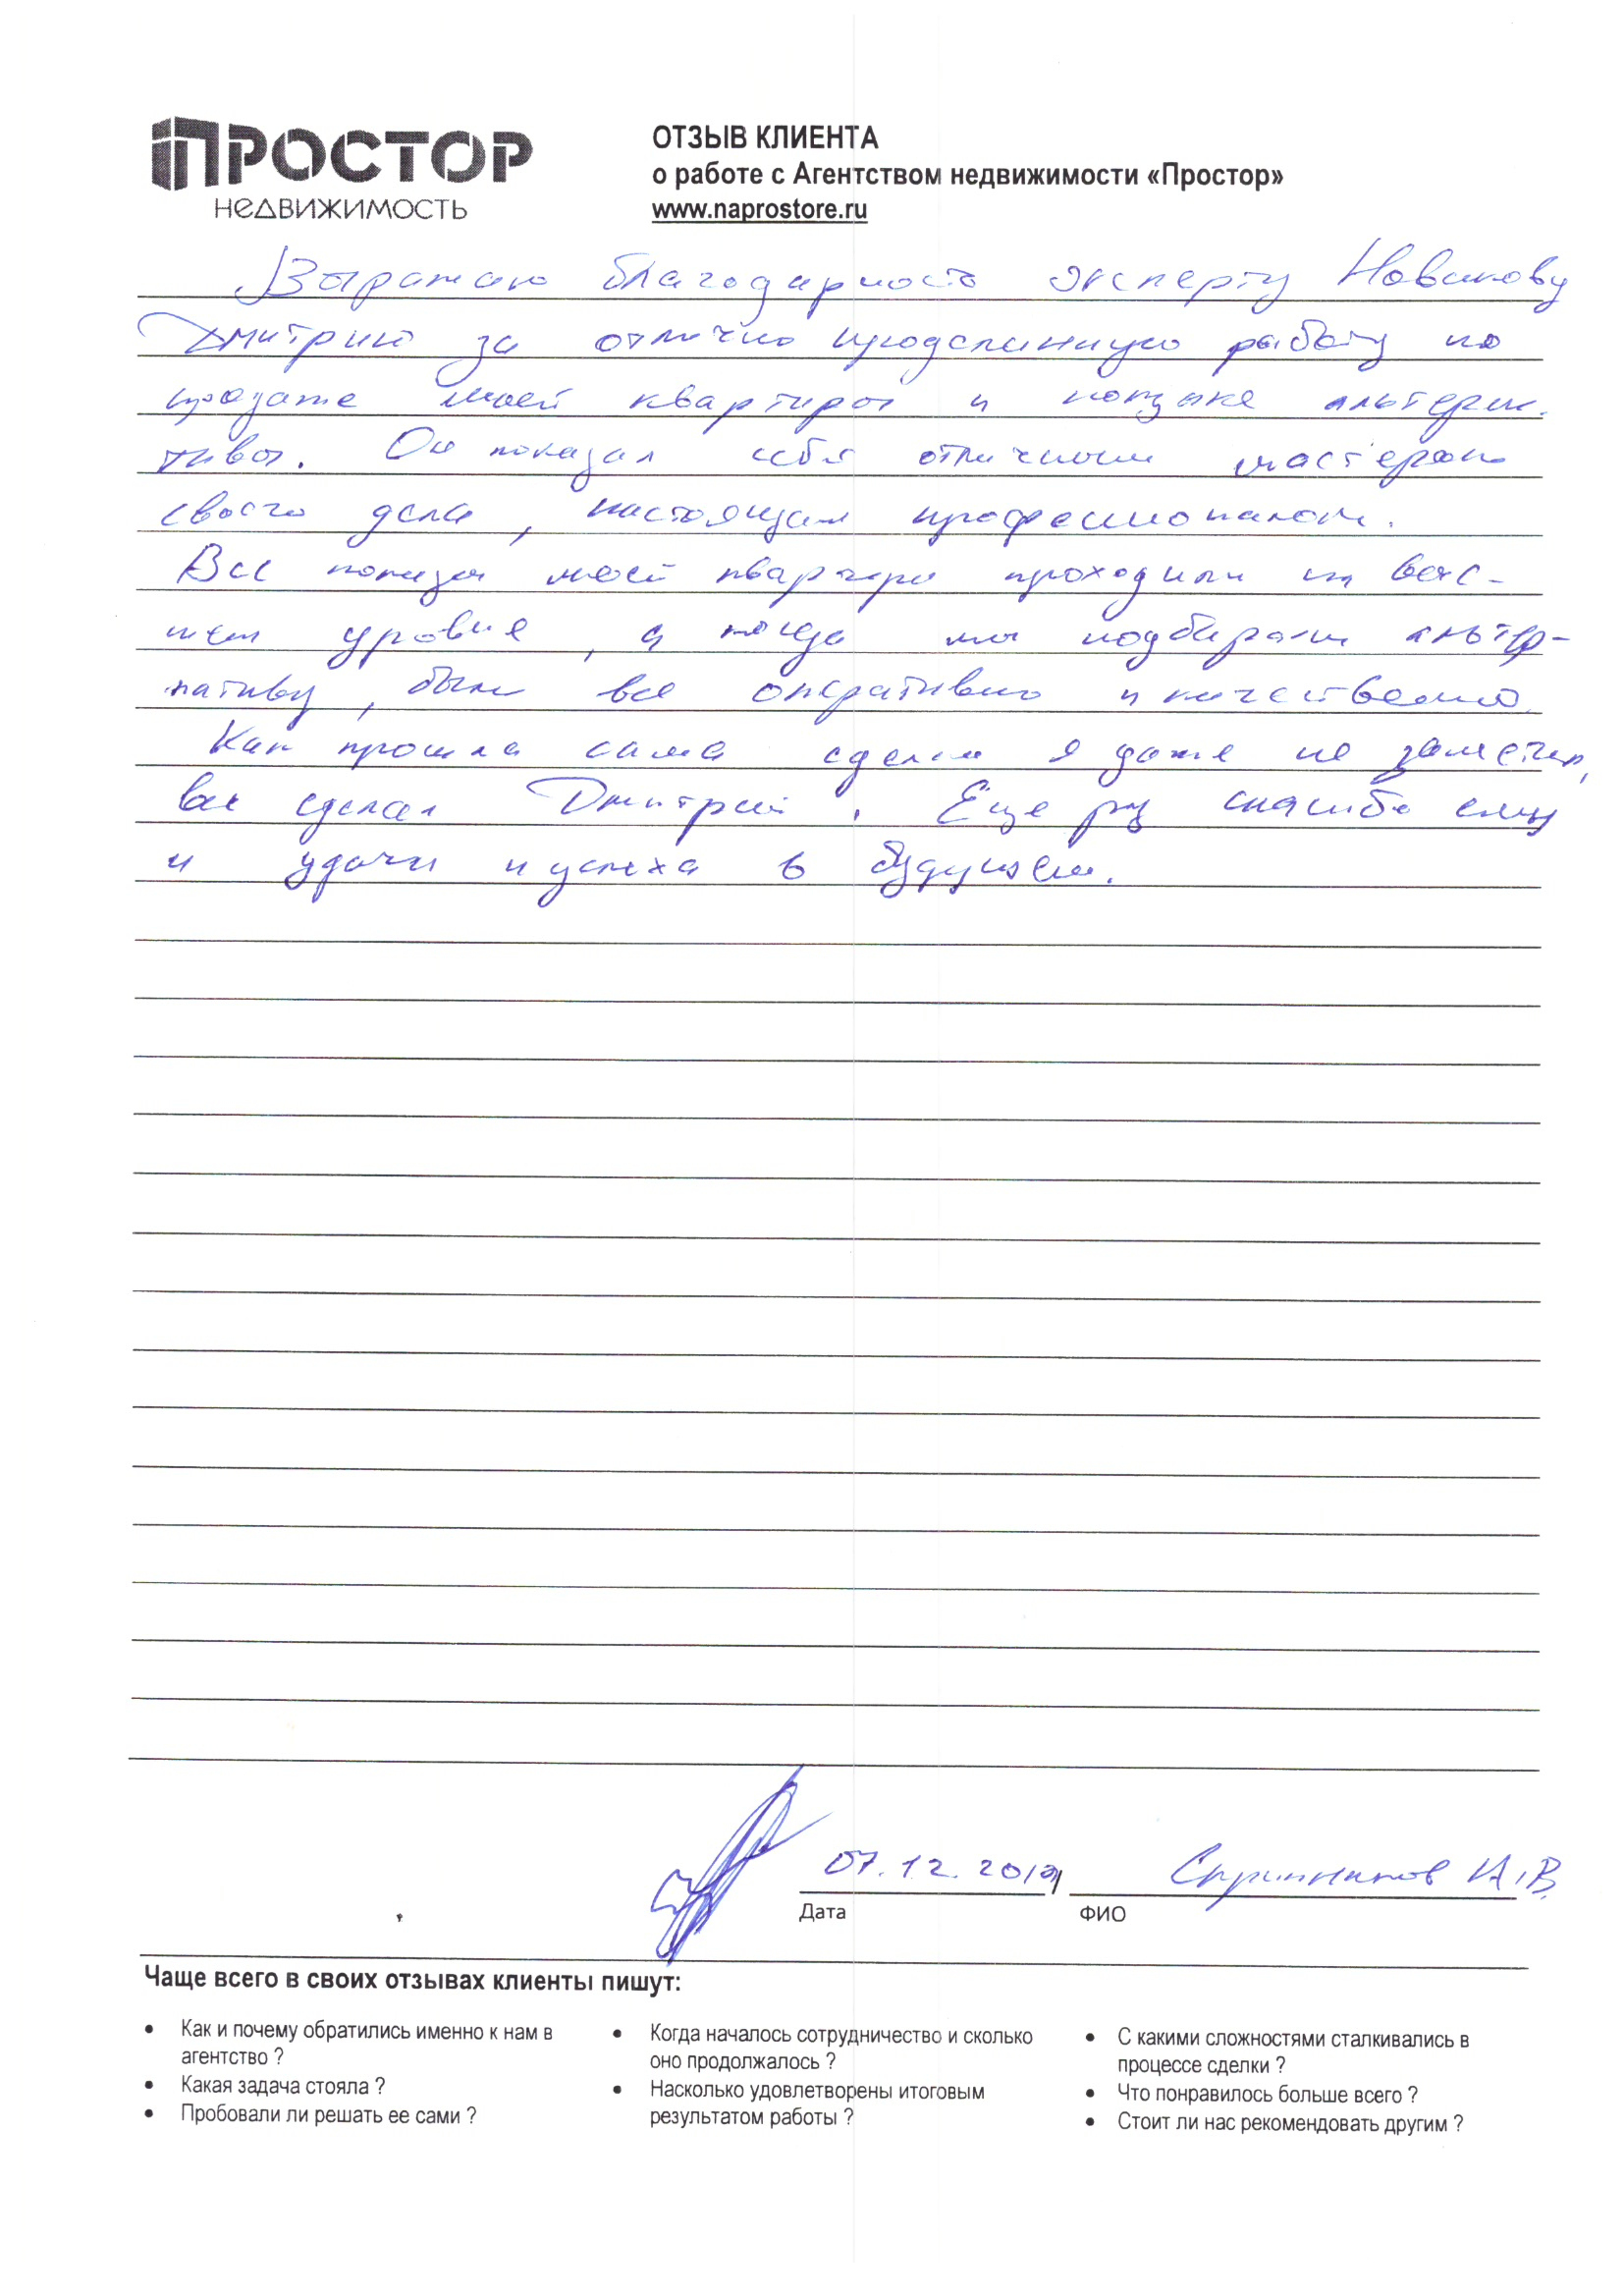 ПРОСТОР
НЕДВИЖИМОСТЬ
ОТЗЫВ КЛИЕНТА
о работе с Агентством недвижимости «Простор»
www.naprostore.ru
Выражаю благодарность эксперту Новикову
Дмитрию за отлично проделанную работу по
продаже моей квартиры и покупке альтерна-
тивы. Он показал себя отличным мастером
своего дела, настоящим профессионалом.
Все показы моей квартиры проходили на выс-
шем уровне, а когда мы подбирали альтер-
нативу, было все оперативно и качественно.
Как прошла сама сделка я даже не заметил,
все сделал Дмитрий. Еще раз спасибо ему
и удачи и успеха в будущем.
07.12.2019
Скрипников И.В.
Дата
ФИО
Чаще всего в своих отзывах клиенты пишут:
• Как и почему обратились именно к нам в
агентство ?
• Какая задача стояла ?
• Пробовали ли решать ее сами ?
• Когда началось сотрудничество и сколько
оно продолжалось ?
• Насколько удовлетворены итоговым
результатом работы ?
• С какими сложностями сталкивались в
процессе сделки ?
• Что понравилось больше всего ?
• Стоит ли нас рекомендовать другим ?